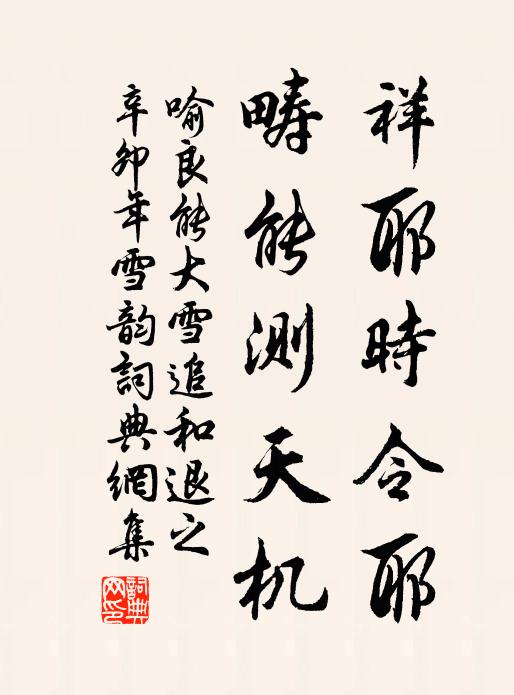 祥耶時令耶
疇能测天机
喻良能大雪追和退之
辛卯年雪韵詞典網集
詞典网印